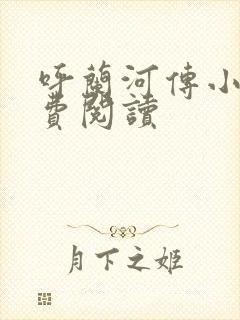 呼蘭河傳小
費閱讀
月下之姬